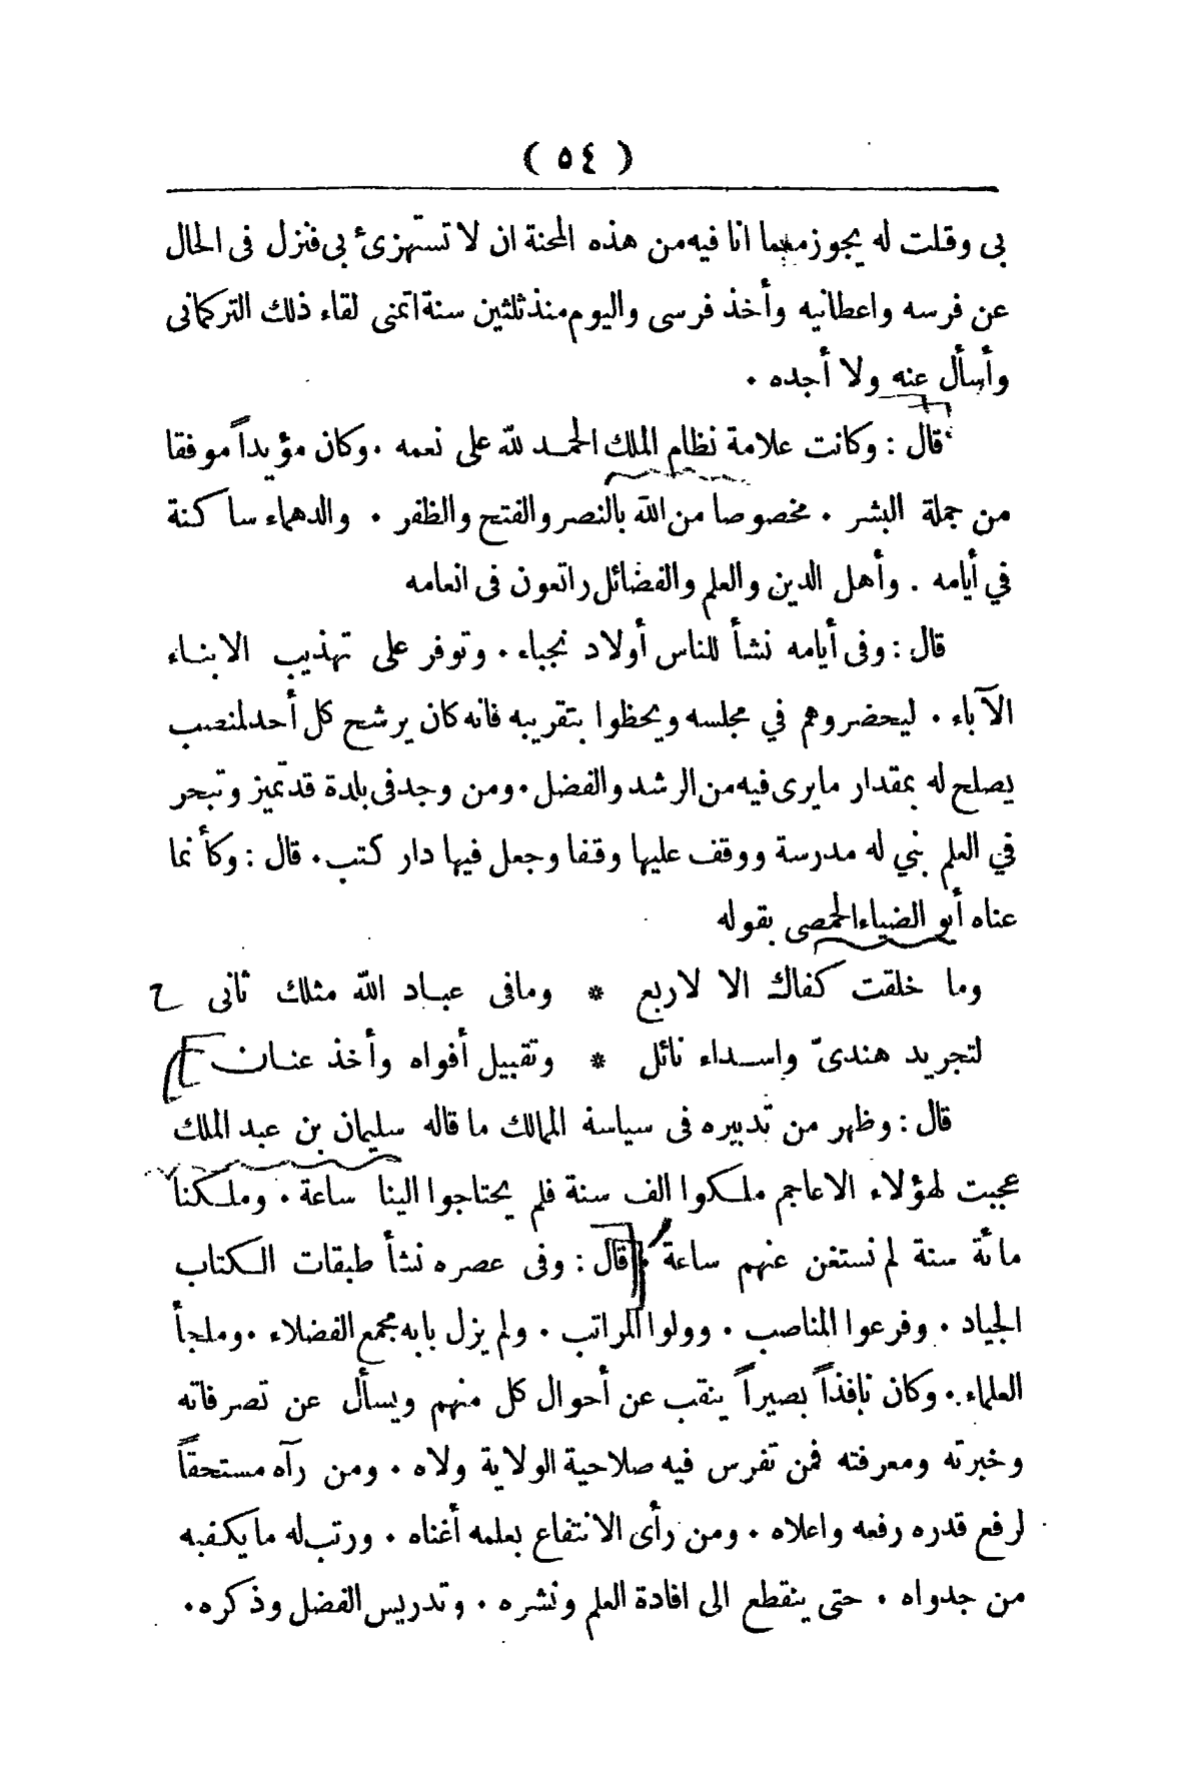 ( ٥٤ )
بى وقلت له يجوز مع ما انا فيه من هذه المحنة ان لا تستهزئ بى فنزل فى الحال
عن فرسه واعطانيه وأخذ فرسى واليوم منذ ثلثين سنة اتمنى لقاء ذلك التركمانى
وأسأل عنه ولا أجده ٠
قال : وكانت علامة نظام الملك الحمد لله على نعمه ٠ وكان مؤيداً موفقا
من جملة البشر ٠ مخصوصا من الله بالنصر والفتح والظفر ٠ والدهماء ساكنة
في أيامه . وأهل الدين والعلم والفضائل راتعون فى انعامه
قال : وفى أيامه نشأ للناس أولاد نجباء ٠ وتوفر على تهذيب الابناء
الآباء ٠ ليحضروهم في مجلسه ويحظوا بتقريبه فانه كان يرشح كل أحد لمنصب
يصلح له بمقدار ما يرى فيه من الرشد والفضل ٠ ومن وجد فى بلدة قد تميز وتبحر
في العلم بني له مدرسة ووقف عليها وقفا وجعل فيها دار كتب ٠ قال : وكأنما
عناه أبو الضياء الحمصى بقوله
وما خلقت كفاك الا لاربع * ومافى عباد الله مثلك ثانى ح
لتجريد هندىّ واسداء نائل * وتقبيل أفواه وأخذ عنان
قال : وظهر من تدبيره فى سياسة الممالك ما قاله سليمان بن عبد الملك
عجبت لهؤلاء الاعاجم ملكوا الف سنة فلم يحتاجوا الينا ساعة ٠ وملكنا
مائة سنة لم نستغن عنهم ساعة ٠ قال : وفى عصره نشأ طبقات الكتاب
الجياد ٠ وفرعوا المناصب ٠ وولوا المراتب ٠ ولم يزل بابه مجمع الفضلاء ٠ وملجأ
العلماء ٠ وكان نافذاً بصيراً ينقب عن أحوال كل منهم ويسأل عن تصرفاته
وخبرته ومعرفته فمن تفرس فيه صلاحية الولاية ولاه ٠ ومن رآه مستحقاً
لرفع قدره رفعه واعلاه ٠ ومن رأى الانتفاع بعلمه أغناه ٠ ورتب له ما يكفيه
من جدواه ٠ حتى ينقطع الى افادة العلم ونشره ٠ وتدريس الفضل وذكره ٠